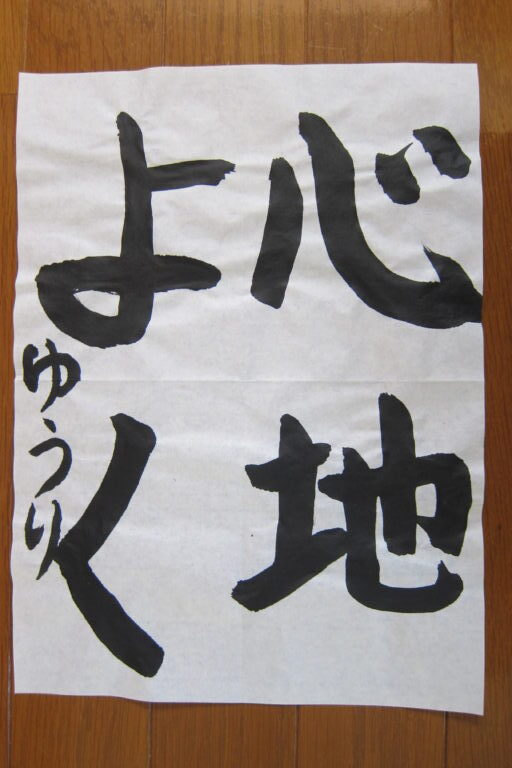 心地
よく
ゆうり